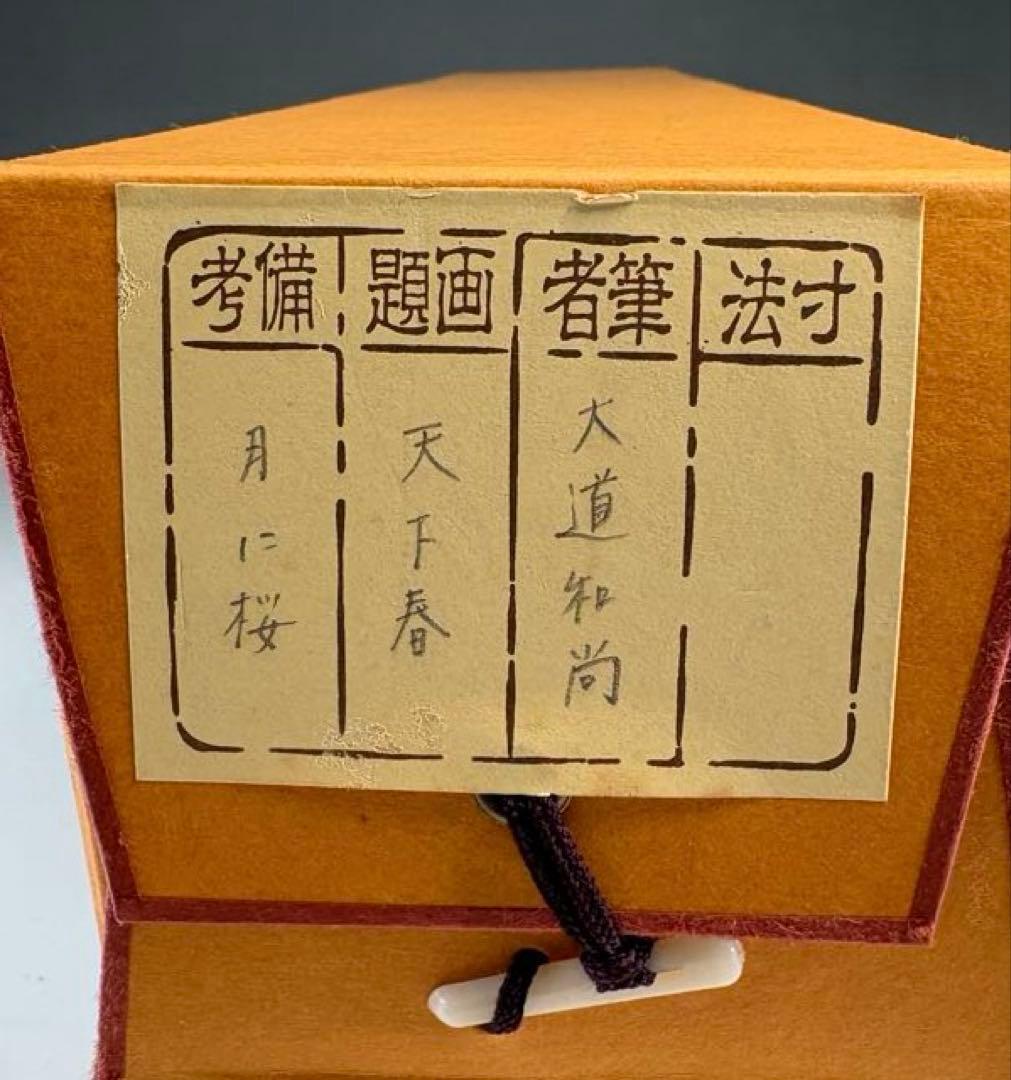 寸法
筆者
大道和尚
画題
天下春
備考
月に桜